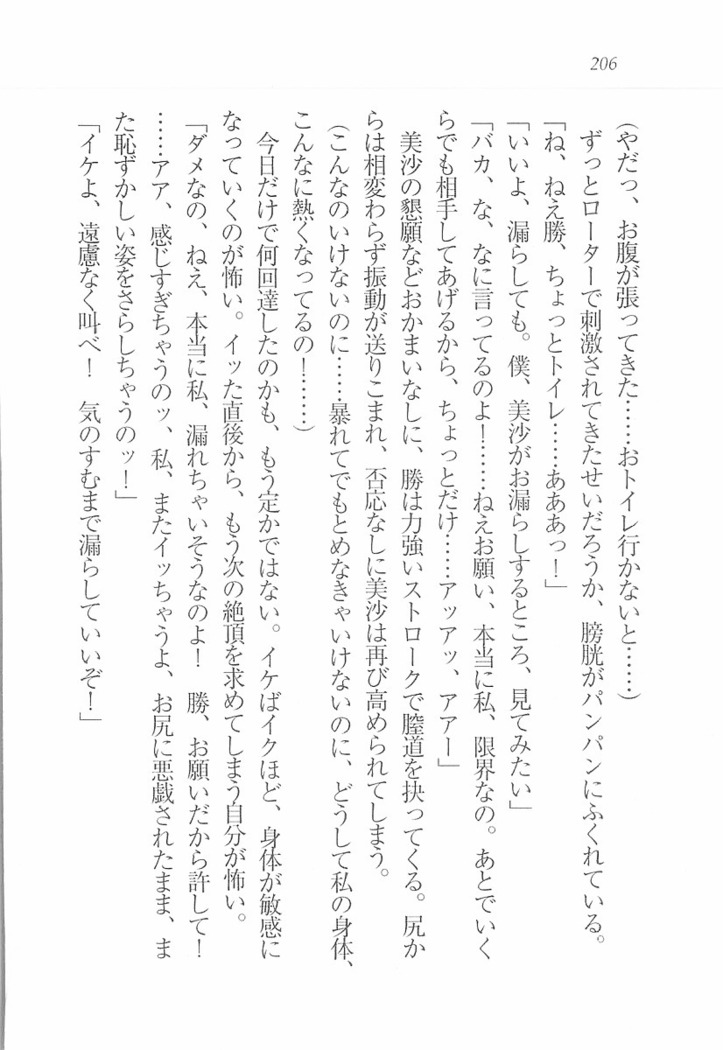 206
(やだっ、お腹が張ってきた……おトイレ行かないと……)
ずっとローターで刺激されてきたせいだろうか、膀胱がパンパンにふくれている。
「ね、ねえ勝、ちょっとトイレ……あああっ！」
「いいよ、漏らしても。僕、美沙がお漏らしするところ、見てみたい」
「バカ、な、なに言ってるのよ！……ねえお願い、本当に私、限界なの。あとでいく
らでも相手してあげるから、ちょっとだけ……アッアッ、アアー」
美沙の懇願などおかまいなしに、勝は力強いストロークで膣道を抉ってくる。尻か
らは相変わらず振動が送りこまれ、否応なしに美沙は再び高められてしまう。
(こんなのいけないのに……暴れてでもとめなきゃいけないのに、どうして私の身体、
こんなに熱くなってるの！……)
今日だけで何回達したのかも、もう定かではない。イケばイクほど、身体が敏感に
なっていくのが怖い。イッた直後から、もう次の絶頂を求めてしまう自分が怖い。
「ダメなの、ねえ、本当に私、漏れちゃいそうなのよ！　勝、お願いだから許して！
……アア、感じすぎちゃうのッ、私、またイッちゃうよ、お尻に悪戯されたまま、ま
た恥ずかしい姿をさらしちゃうのッ！」
「イケよ、遠慮なく叫べ！　気のすむまで漏らしていいぞ！」